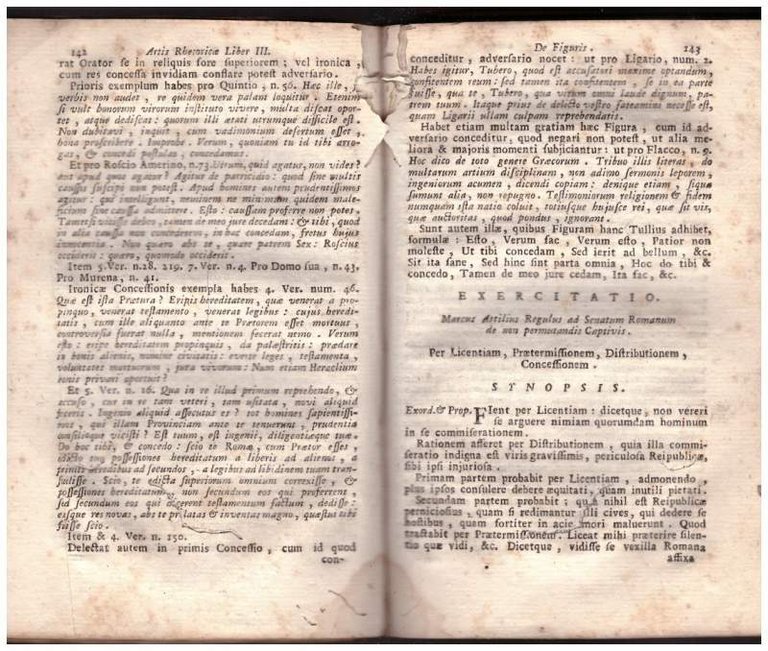 142 Artis Rhetoricæ Liber III.
rat Orator se in reliquis fore superiorem ; vel ironica ,
cum res concessa invidiam conflare potest adversario.
Prioris exemplum habes pro Quintio , n. 56. Hæc ille ,
verbis non audet , re quidem vera palam loquitur . Etenim
si vult bonorum virorum instituto vivere, multa discat opor-
tet , atque dediscat : quorum illi ætati utrumque difficile est .
Non dubitavi , inquit , cum vadimonium desertum esset ,
bona proscribere . Improbe . Verum, quoniam tu id tibi arro-
gas, & concedi postulas , concedamus.
Et pro Roscio Amerino, n.73. Utrum, quid agatur, non vides?
aut apud quos agatur? Agitur de parricidio : quod sine multis
caussis suscipi non potest . Apud homines autem prudentissimos
agitur : qui intelligunt, neminem ne minimum quidem male-
ficium sine caussa admittere . Esto : caussam proferre non potes .
Tametsi statim vicisse debeo, tamen de meo jure decedam : & tibi , quod
in alia caussa non concederem , in hac concedam , fretus hujus
innocentia . Non quæro abs te , quare patrem Sex: Roscius
occiderit : quæro, quomodo occiderit .
Item 5. Ver. n.28. 219. 7. Ver. n.4. Pro Domo sua , n. 43,
Pro Murena, n. 41.
Ironicæ Concessionis exempla habes 4. Ver. num. 46.
Quæ est ista Prætura ? Eripis hereditatem, quæ venerat a pro-
pinquo , venerat testamento , venerat legibus : cujus heredi-
tatis , cum ille aliquanto ante te Prætorem esset mortuus ,
controversia fuerat nulla , mentionem fecerat nemo . Verum
esto : eripe hereditatem propinquis , da palæstritis : prædare
in bonis alienis, nomine civitatis : everte leges , testamenta ,
voluntates mortuorum , jura vivorum : Num etiam Heraclium
bonis privari oportuit ?
Et 5. Ver. n. 16. Qua in re illud primum reprehendo, &
accuso , cur in re tam veteri , tam usitata , novi aliquid
feceris . Ingenio aliquid assecutus es ? tot homines sapientissi-
mos , qui illam Provinciam ante te tenuerunt , prudentia
consilioque vicisti ? Est tuum , est ingenii, diligentiæque tuæ .
Do hoc tibi , & concedo : scio te Romæ , cum Prætor esses ,
edicto tuo possessiones hereditatum a liberis ad alienos ,
a primis heredibus ad secundos , a legibus ad libidinem tuam tran-
stulisse . Scio , te edicta superiorum omnium correxisse , &
possessiones hereditatum, non secundum eos qui proferrent ,
sed secundum eos qui dicerent testamentum factum , dedisse :
easque res novas, abs te prolatas & inventas magno , quæstui tibi
fuisse scio .
Item & 4. Ver. n. 150.
Delectat autem in primis Concessio , cum id quod
con-
De Figuris . 143
conceditur , adversario nocet : ut pro Ligario, num. 2.
Habes igitur, Tubero, quod est accusatori maxime optandum,
confitentem reum : sed tamen ita confitentem , se in ea parte
fuisse , qua te , Tubero , qua virum omni laude dignum , pa-
trem tuum . Itaque prius de delicto vestro fateamini necesse est,
quam Ligarii ullam culpam reprehendatis .
Habet etiam multam gratiam hæc Figura , cum id ad-
versario conceditur, quod negari non potest , ut alia me-
liora & majoris momenti subjiciantur : ut pro Flacco, n. 9.
Hoc dico de toto genere Græcorum . Tribuo illis literas , do
multarum artium disciplinam , non adimo sermonis leporem ,
ingeniorum acumen , dicendi copiam : denique etiam , siqua
sumunt alia, non repugno . Testimoniorum religionem & fidem
numquam ista natio coluit , totiusque hujusce rei , quæ sit vis,
quæ auctoritas , quod pondus , ignorant .
Sunt autem illæ, quibus Figuram hanc Tullius adhibet,
formulæ : Esto , Verum fac , Verum esto , Patior non
moleste , Ut tibi concedam , Sed ierit ad bellum , &c.
Sit ita sane , Sed hinc sint parta omnia , Hoc do tibi &
concedo , Tamen de meo jure cedam, Ita fac , &c.
EXERCITATIO.
Marcus Attilius Regulus ad Senatum Romanum
de non permutandis Captivis.
Per Licentiam, Prætermissionem, Distributionem ,
Concessionem .
SYNOPSIS.
Exord. & Prop. FIent per Licentiam : dicetque , non vereri
se arguere nimiam quorumdam hominum
in se commiserationem .
Rationem afferet per Distributionem , quia illa commi-
seratio indigna est viris gravissimis, periculosa Reipublicæ,
sibi ipsi injuriosa .
Primam partem probabit per Licentiam , admonendo ,
plus ipsos consulere debere æquitati , quam inutili pietati .
Secundam partem probabit : quia nihil est Reipublicæ
perniciosius , quam si redimantur illi cives, qui dedere se
hostibus , quam fortiter in acie mori maluerunt . Quod
tractabit per Prætermissionem : Liceat mihi præterire silen-
tio quæ vidi, &c. Dicetque , vidisse se vexilla Romana
affixa